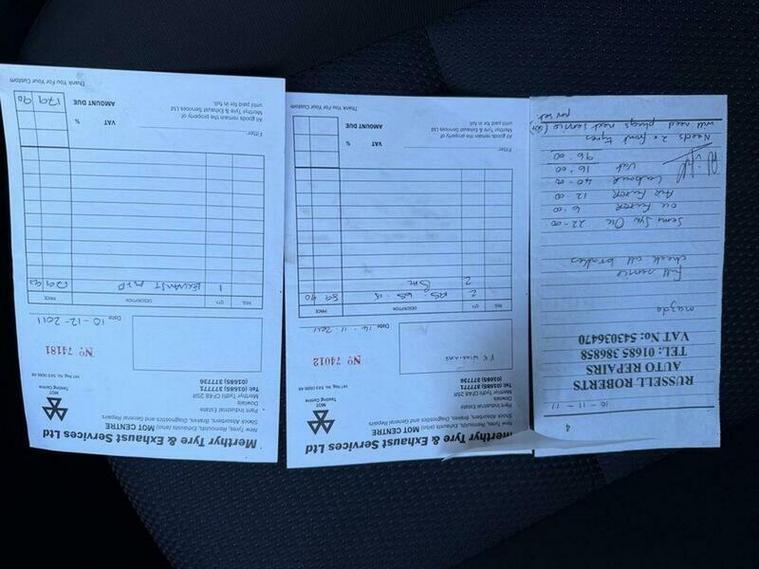 4
10-11-11
RUSSELL ROBERTS
AUTO REPAIRS
TEL: 01685 386858
VAT No: 543036470
mazda
full service
check all brakes
Semi Syn Oil 22-00
Oil Filter 6 00
Air Filter 12 00
Labour 40-00
Vat 16 00
96-00
Needs 2x front tyres
will need plugs next service
Merthyr Tyre & Exhaust Services Ltd
New Tyres, Remoulds, Exhausts (also) MOT CENTRE
Shock Absorbers, Batteries, Diagnostics and General Repairs
Pant Industrial Estate
Dowlais
Merthyr Tydfil CF48 2SR
Tel: (01685) 377771
(01685) 377736
MOT
Testing Centre
No 74012
Date 14-11-2011
REG. QTY. DESCRIPTION PRICE
2 89 90
2
Fitter
All goods remain the property of
Merthyr Tyre & Exhaust Services Ltd
until paid for in full.
VAT %
AMOUNT DUE
Thank You For Your Custom
Merthyr Tyre & Exhaust Services Ltd
New Tyres, Remoulds, Exhausts (also) MOT CENTRE
Shock Absorbers, Batteries, Diagnostics and General Repairs
Pant Industrial Estate
Dowlais
Merthyr Tydfil CF48 2SR
Tel: (01685) 377771
(01685) 377736
MOT
Testing Centre
No 74181
Date 10-12-2011
REG. QTY. DESCRIPTION PRICE
1 Exhaust 179 90
Fitter
All goods remain the property of
Merthyr Tyre & Exhaust Services Ltd
until paid for in full.
VAT %
AMOUNT DUE 179 90
Thank You For Your Custom